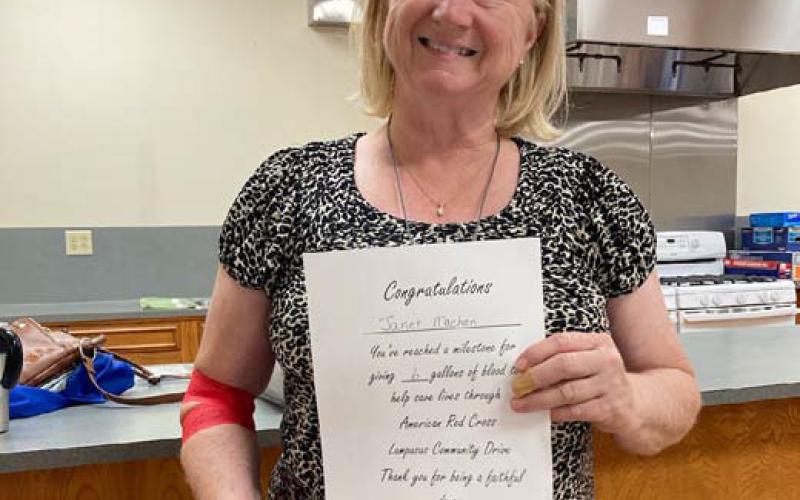 Congratulations
Janet Machen
You've reached a milestone for
giving 6 gallons of blood to
help save lives through
American Red Cross
Lampasas Community Drive
Thank you for being a faithful